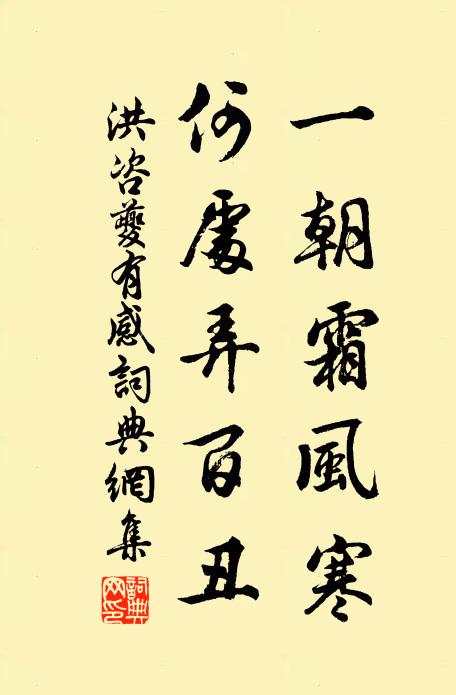 一朝霜風寒
何處弄百丑
洪咨夔有感詞典網集
詞典网印